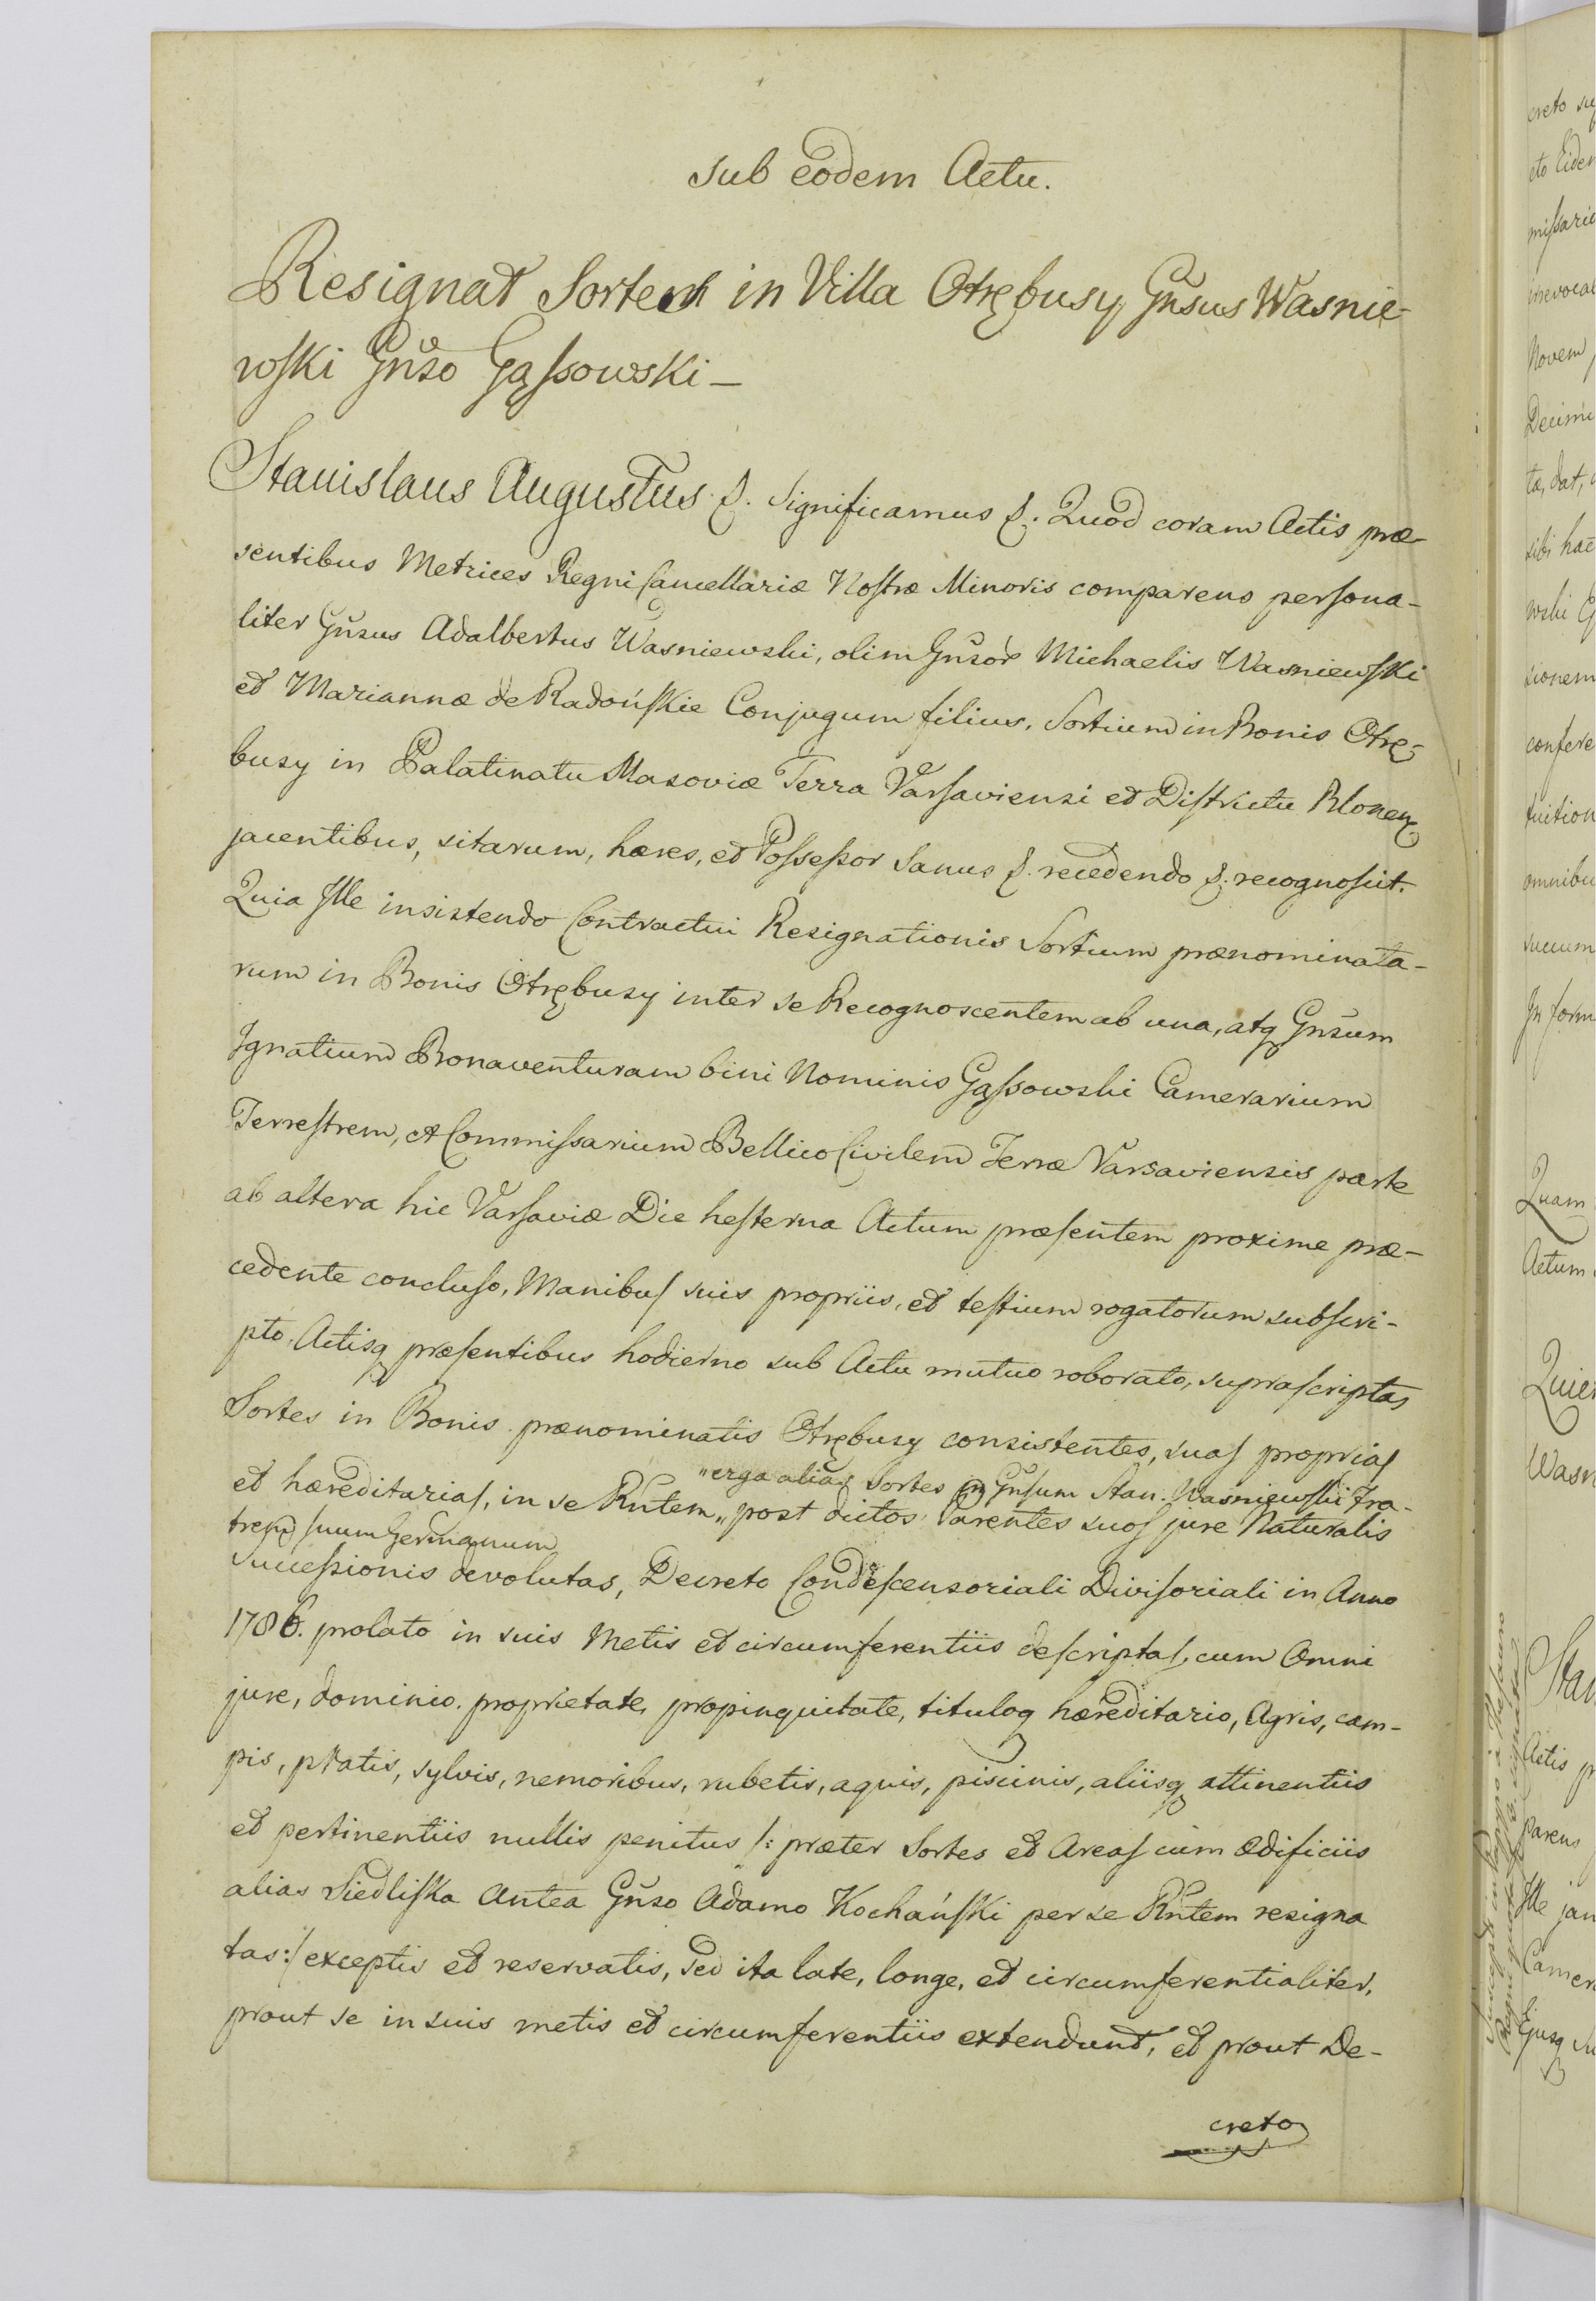 sub eodem Actu.
Resignat Sortem in Villa Otrębusy Gnsus Wasnie-
wski Gnso Gąssowski –
Stanislaus Augustus &. Significamus &. Quod coram Actis præ-
sentibus Metrices Regni Cancellariæ Nostræ Minoris comparens persona-
liter Gnsus Adalbertus Wasniewski, olim Gnsor Michaelis Wasniewski
et Mariannæ de Radońskie Conjugum filius, Sortium in Bonis Otrę-
busy in Palatinatu Masoviæ Terra Varsaviensi et Districtu Blonen
jacentibus, sitarum, hæres, et Possessor Sanus &. recedendo &. recognoscit.
Quia Ille insistendo Contractui Resignationis Sortium prænominata-
rum in Bonis Otrębusy inter se Recognoscentem ab una, atq Gnsum
Ignatium Bonaventuram bini Nominis Gąssowski Camerarium
Terrestrem, et Commissarium Bellico Civilem Terræ Varsaviensis parte
ab altera hic Varsaviæ Die hesterna Actum præsentem proxime præ-
cedente concluso, Manibus suis propriis, et testium rogatorum subscri-
pto. Actisq præsentibus hodierno sub Actu mutuo roborato, suprascriptas
Sortes in Bonis prænominatis Otrębusy consistentes, suas proprias
"erga alias Sortes in Gnsum Stan: Wasniewski Fra-
et hæreditarias, in se Rntem „ post dictos Parentes suos jure Naturalis
trem suum Germanum
Successionis devolutas, Decreto Condescensoriali Divisoriali in Anno
1786. prolato in suis Metis et circumferentiis descriptas, cum Omni
jure, dominio. proprietate, propinquitate, tituloq hæreditario, Agris, cam-
pis, pratis, sylvis, nemoribus, rubetis, aquis, piscinis, aliisq attinentiis
et pertinentiis nullis penitus /: præter Sortes et Areas cum ædificiis
alias Siedliska Antea Gnso Adamo Kochański per se Rntem resigna
tas :/ exceptis et reservatis, sed ita late, longe, et circumferentialiter,
prout se in suis metis et circumferentiis extendunt, et prout De-
creto
creto
eto Eiden
missari
irrevocab
Novem
Decim
ta, dat,
sibi hac
wski G
sionem
confere
tuition
omnibu
succum
In form
Quam
Actum
Quie
Wasn
Stan
Actis p
parens
Ille jam
Camer
Ejusq